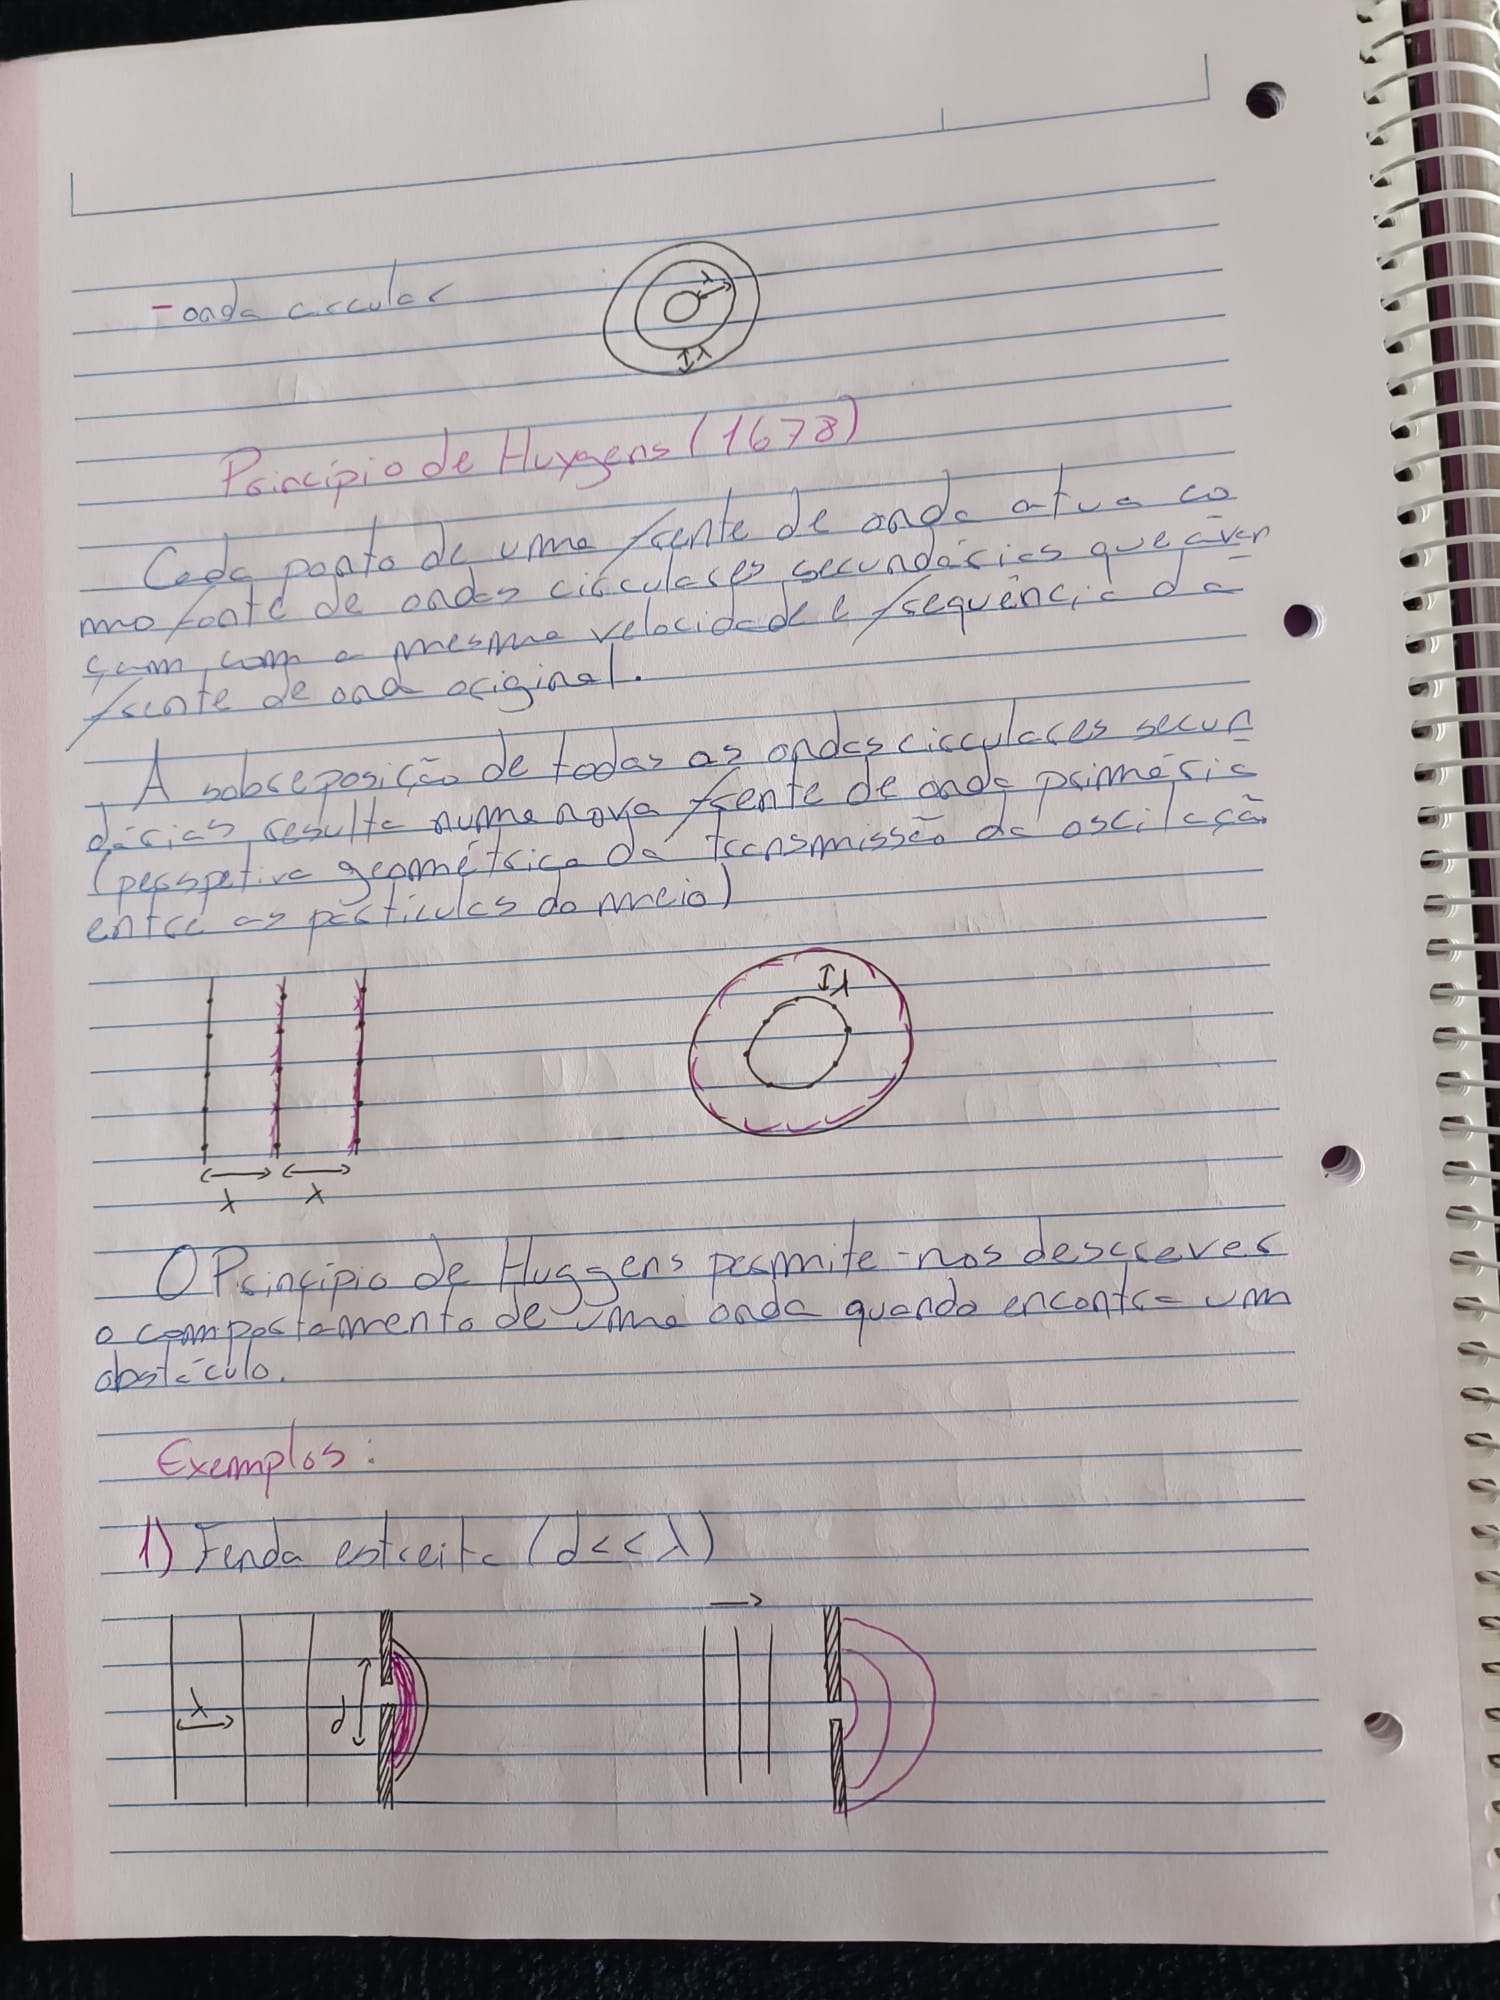 - onda circular
λ
λ
Princípio de Huygens (1678)
Cada ponto de uma frente de onda atua co
mo fonte de ondas circulares secundárias que avan
çam com a mesma velocidade e frequência da
frente de onda original.
A sobreposição de todas as ondas circulares secun
dárias resulta numa nova frente de onda primária
(perspetiva geométrica da transmissão da oscilação
entre as partículas do meio)
λ
λ λ
O Princípio de Huggens permite-nos descrever
o comportamento de uma onda quando encontra um
obstáculo.
Exemplos:
1) Fenda estreita (d<<λ)
λ d